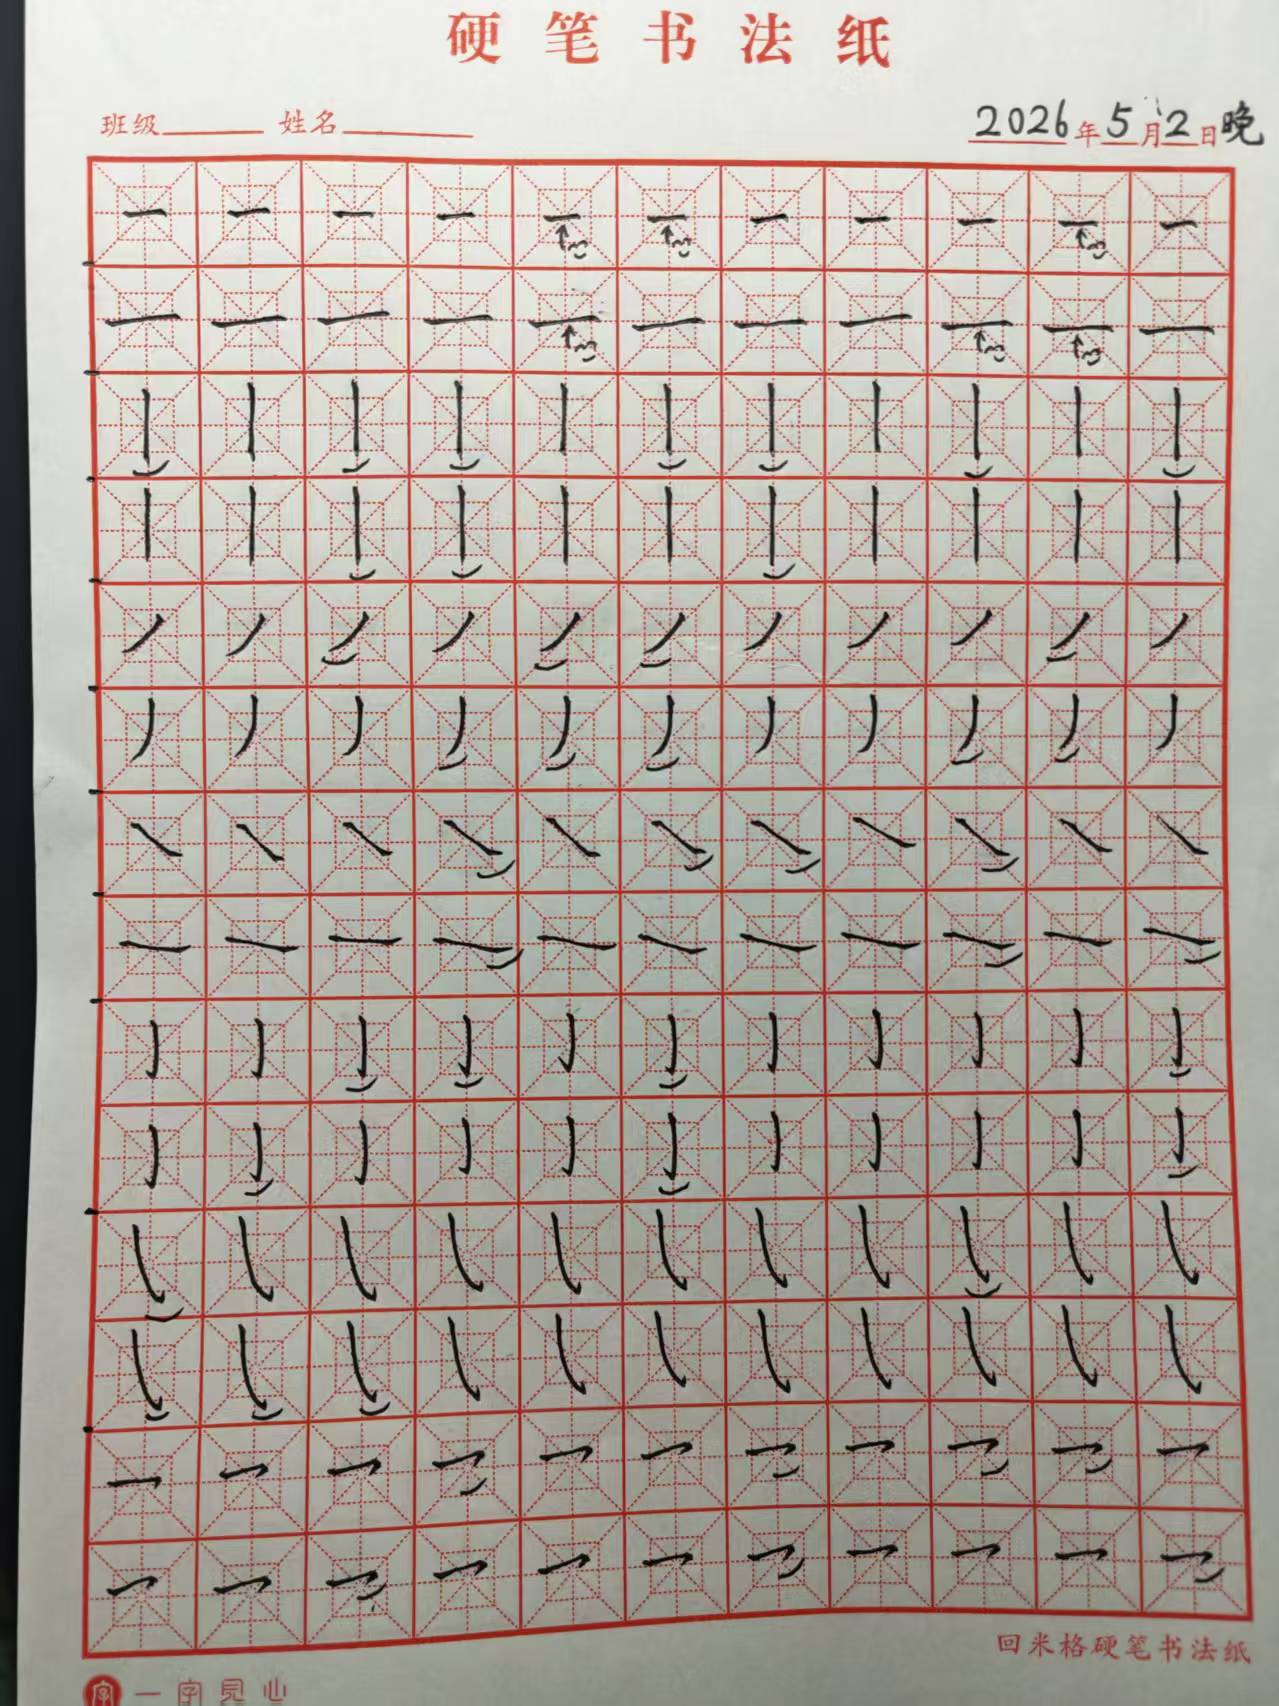 硬笔书法纸
班级 姓名 2026年5月2日晚
回米格硬笔书法纸
字 一字见心